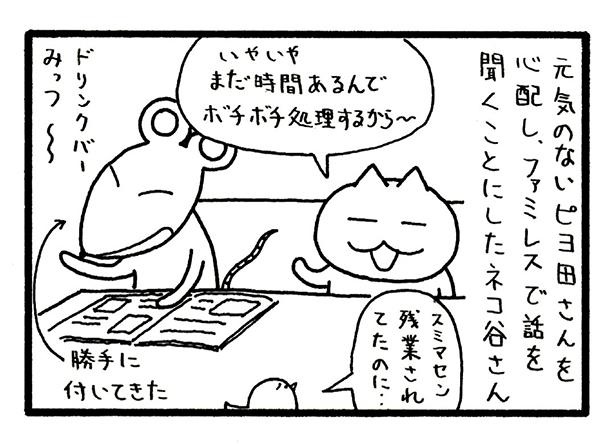 元気のないピヨ田さんを
心配し、ファミレスで話を
聞くことにしたネコ谷さん
いやいや
まだ時間あるんで
ボチボチ処理するから〜
ドリンクバー
みっつ〜〜
スミマセン
残業され
てたのに‥
勝手に
付いてきた